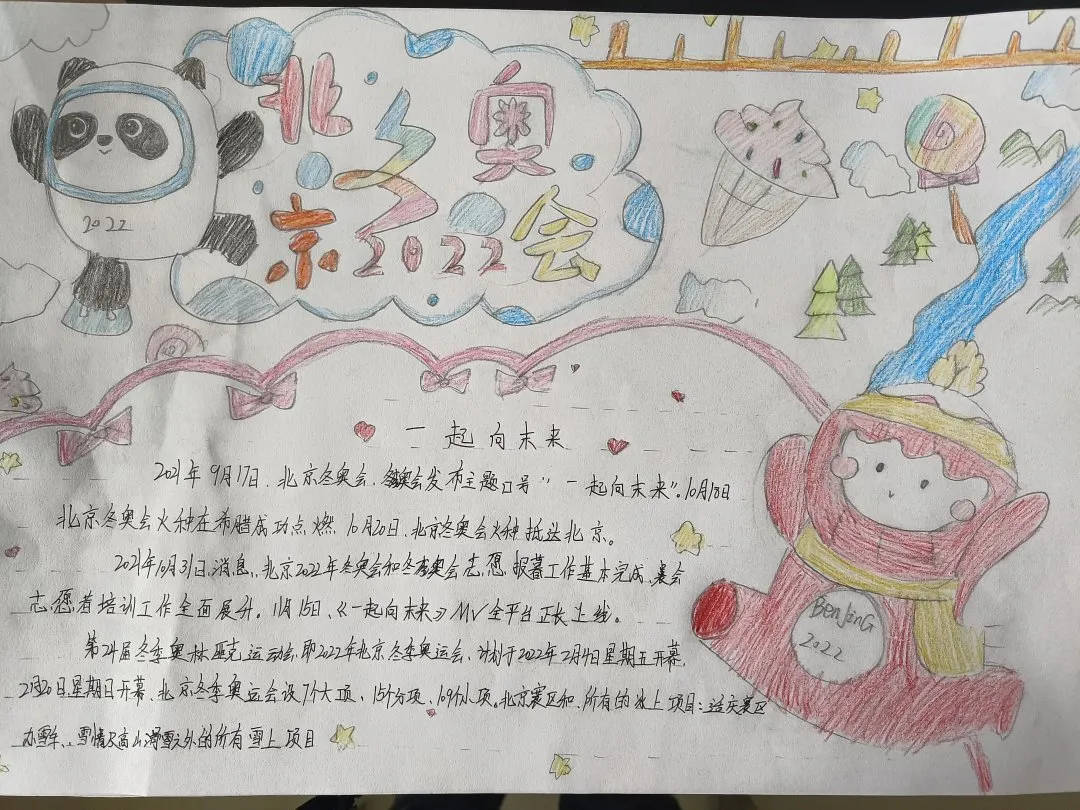 北 奥
冬
京 2022 会
2022
一起向未来
2021年9月17日、北京冬奥会、冬残奥会发布主题口号“一起向未来”。10月18日
北京冬奥会火种在希腊成功点燃 10月20日、北京冬奥会火种抵达北京。
2021年10月31日消息，北京2022年冬奥会和冬残奥会志愿 报募工作基本完成、赛会
志愿者培训工作全面展开。11月15日、《一起向未来》MV全平台正长上线。
第24届冬季奥林匹克运动会、即2022年北京冬季奥运会、计划于2022年2月4日星期五开幕，
2月20日星期日开幕、北京冬季奥运会设7个大项、15个分项、109个小项。北京赛区和、所有的冰上项目：延庆赛区
办雪车、雪情及高山滑雪之外的所有雪上项目
BenJinG
2022